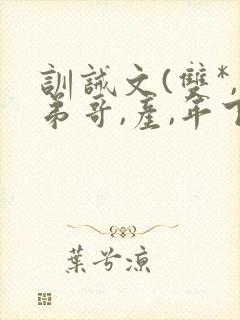 訓誡文(雙*,
弟哥,產,年下
葉兮涼